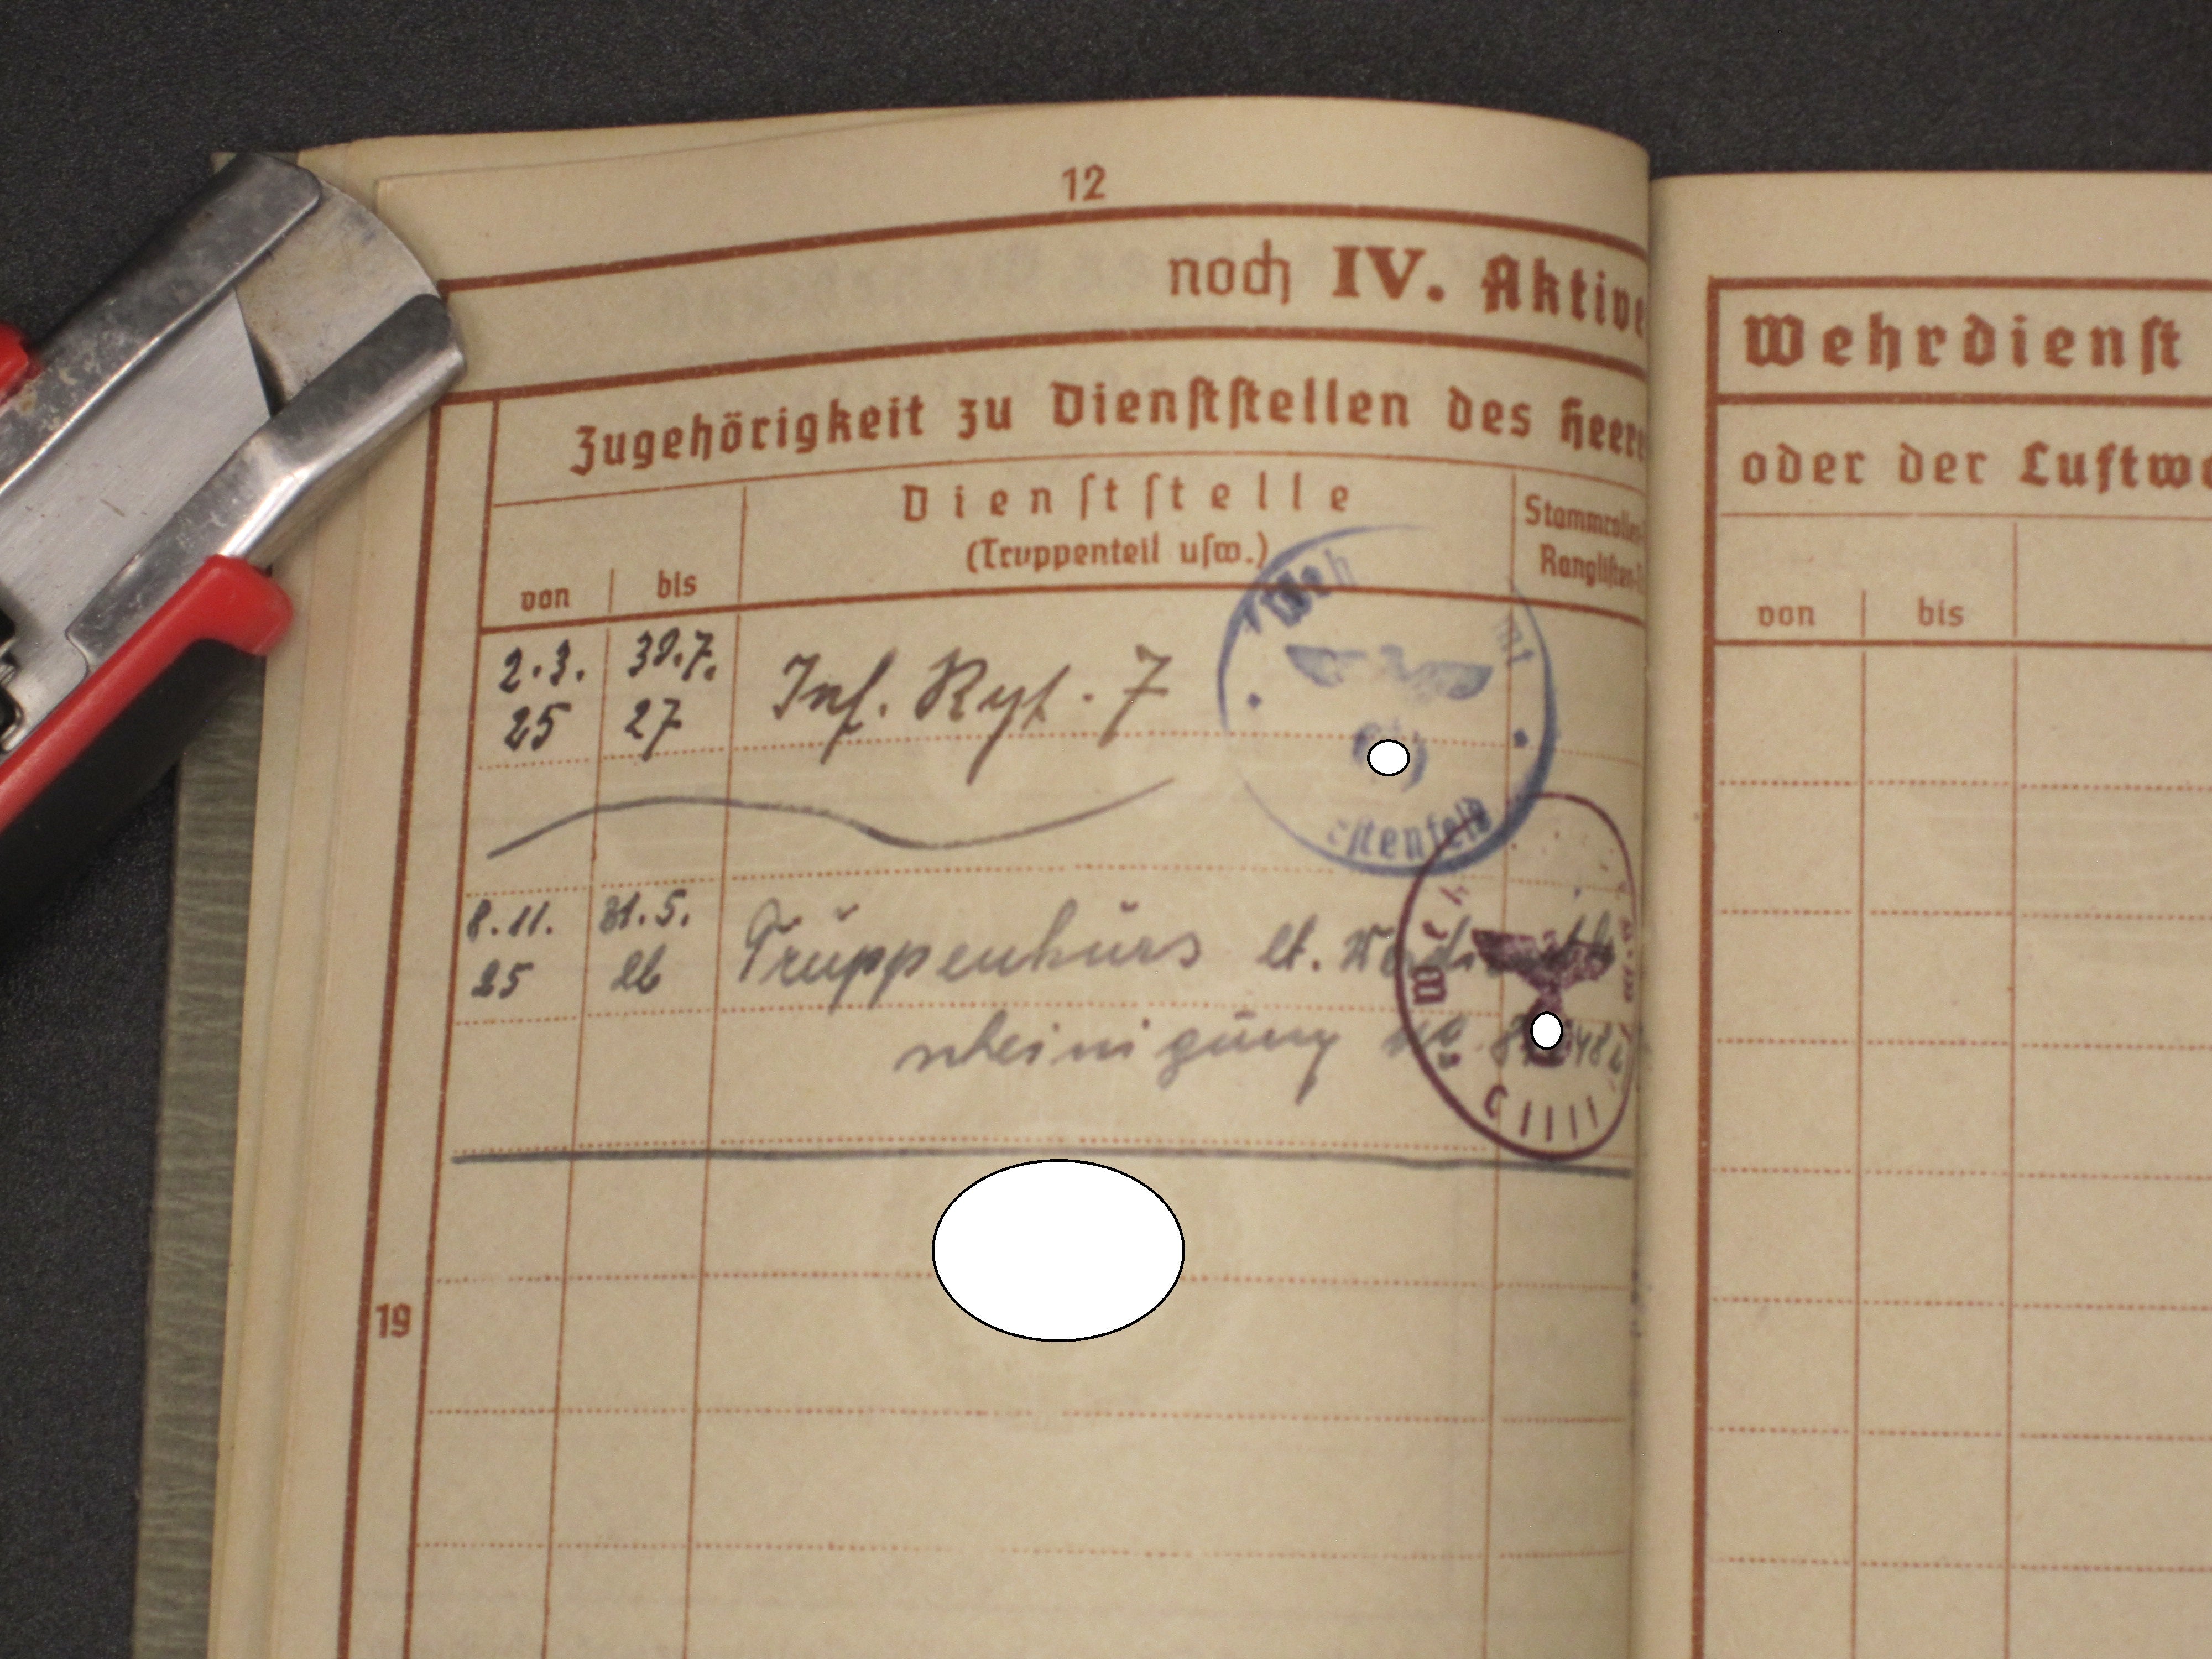 12
noch IV. Aktive
Zugehörigkeit zu Dienststellen des Heere
Dienststelle
(Truppenteil usw.)
von bis
Stammrollen-
Ranglisten-
2.3. 30.7.
25 27
Inf. Rgt. 7
Weh
mt
stenfeld
8.11. 31.5.
25 26
Truppenkurs lt.
scheinigung
19
Wehrdienst
oder der Luftwe
von bis